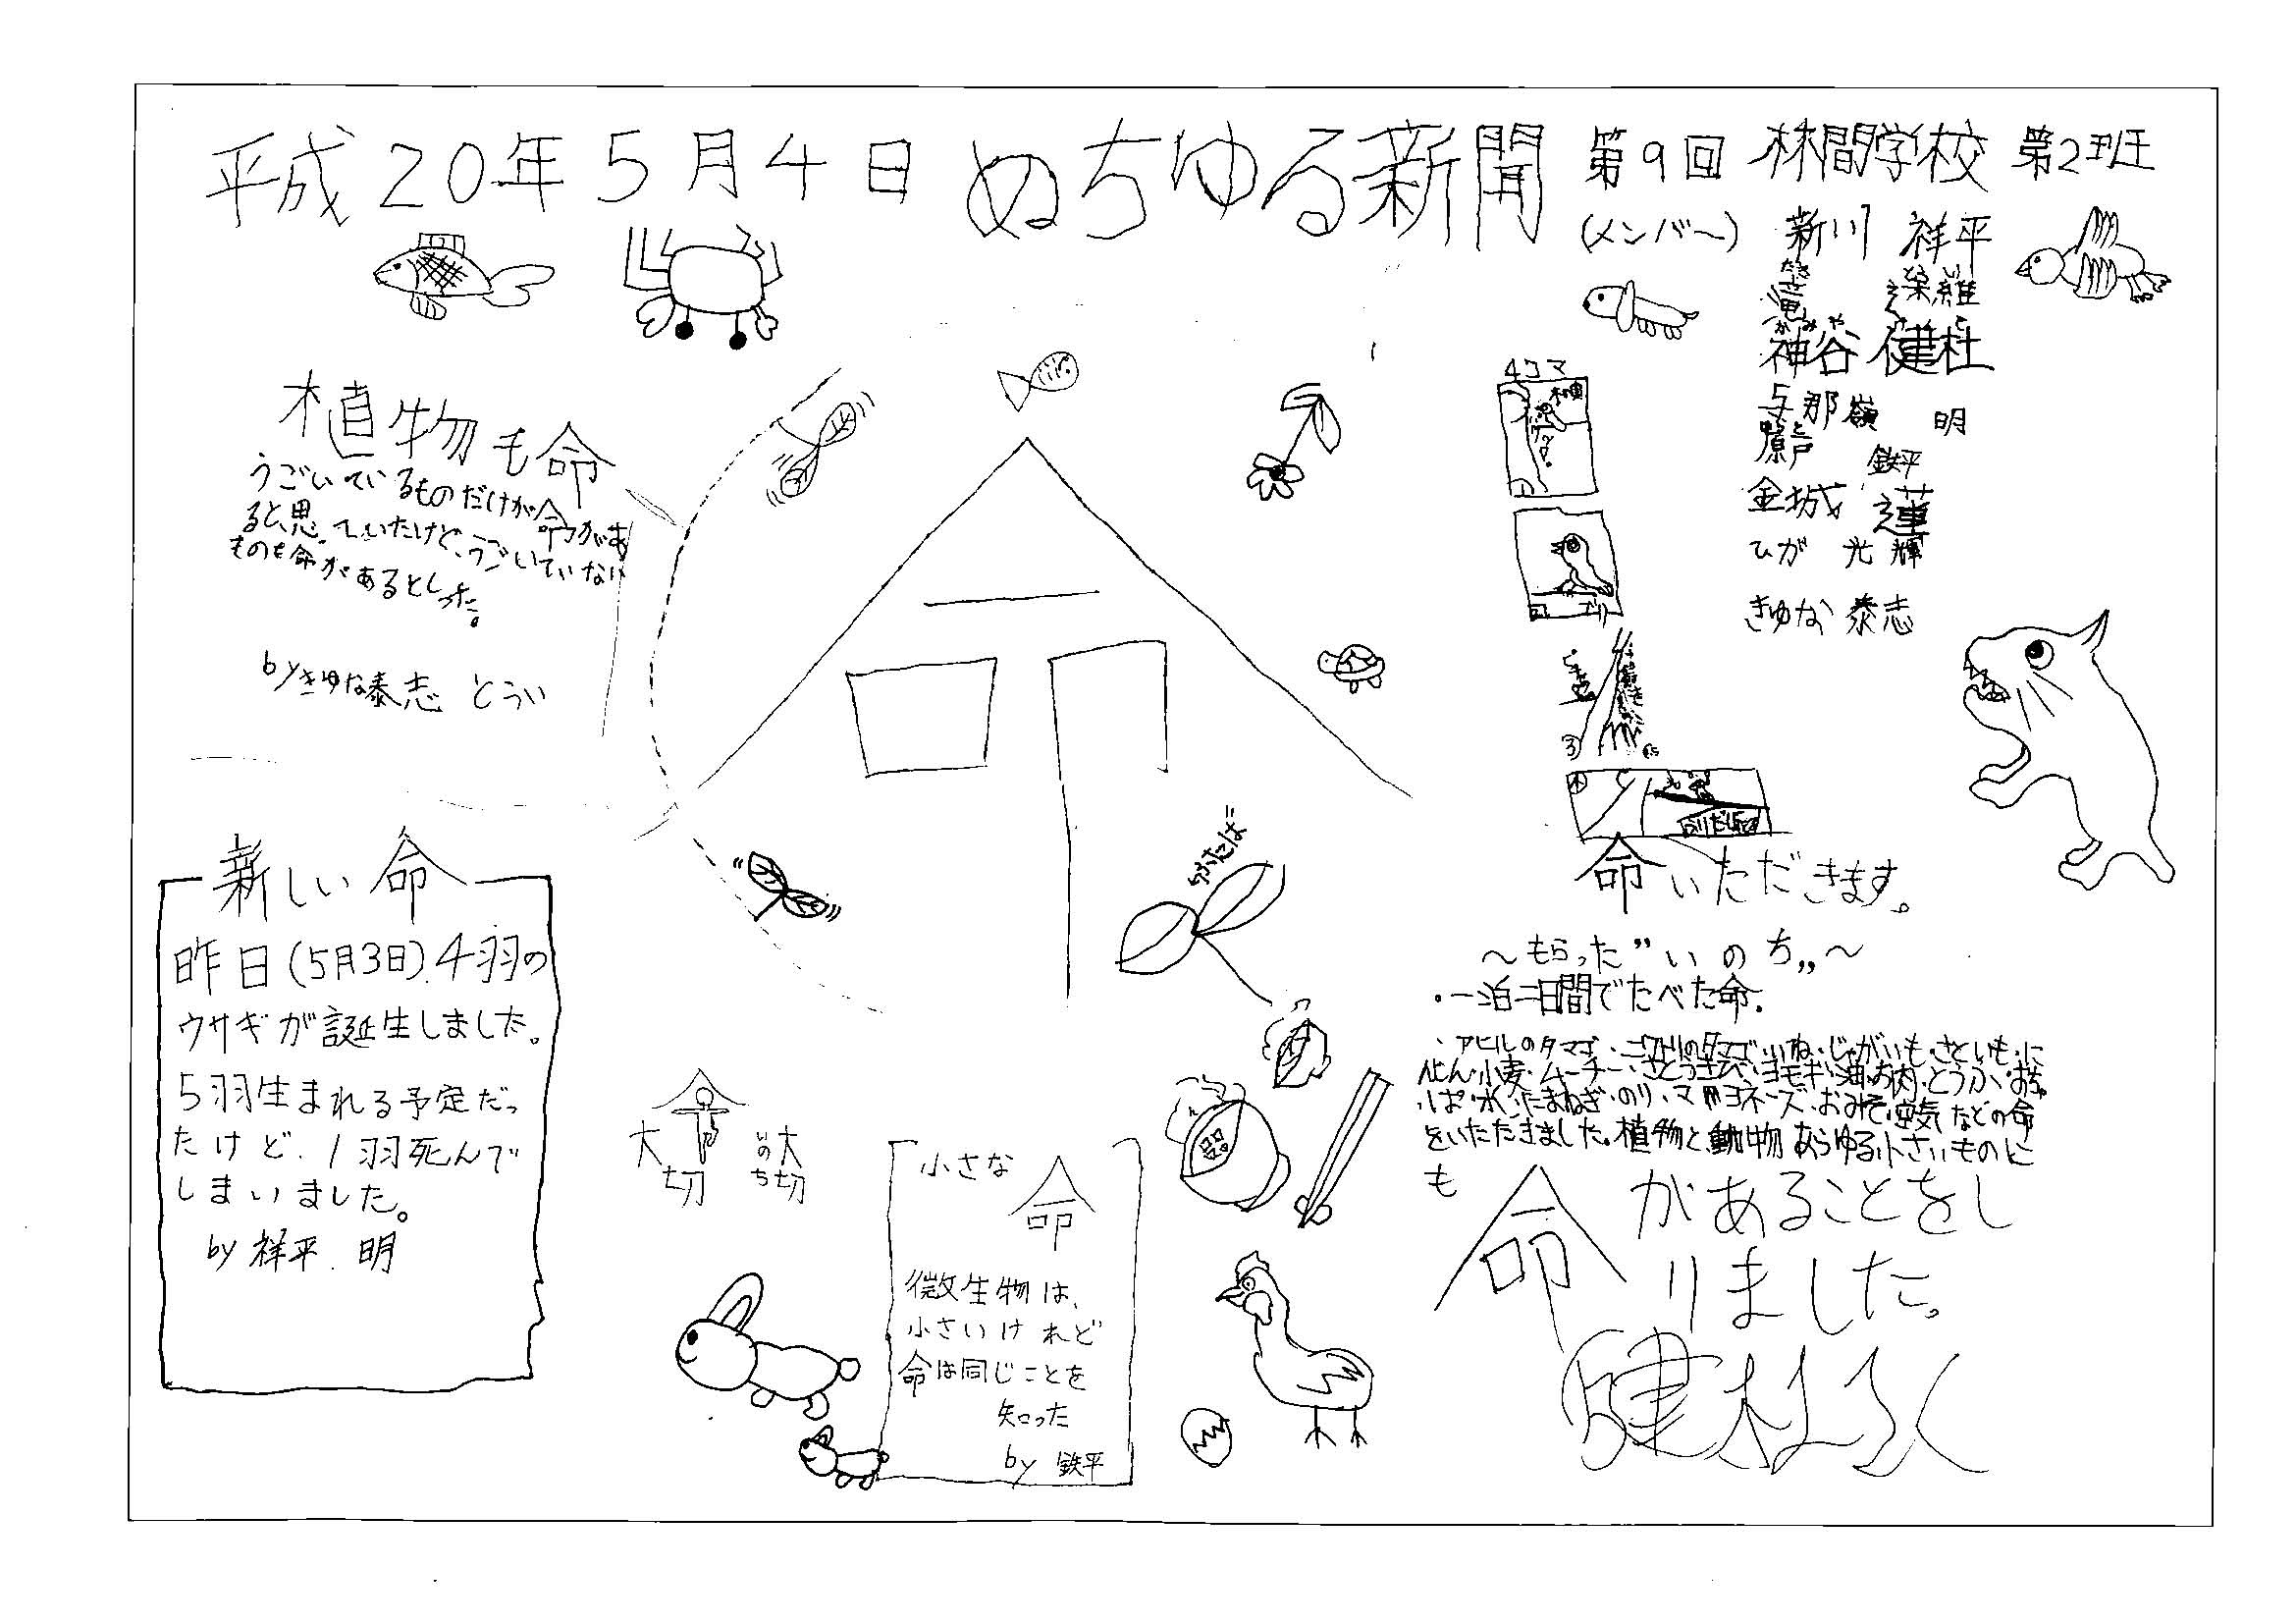 平成20年5月4日 ぬちゆる新聞 第9回 林間学校 第2班
(メンバー) 新川 祥平
神谷 健杜
かみや
与那嶺 明
鉄平
金城 蓮
ひが 光輝
きゆな 泰志
植物も命
うごいているものだけが命があ
ると思っていたけど、うごいていない
ものも命があるとしった。
byきゆな泰志 とうい
命
4コマ
ふたば
新しい命
昨日(5月3日).4羽の
ウサギが誕生しました。
5羽生まれる予定だっ
たけど、1羽死んで
しまいました。
by 祥平. 明
大切
いのち
大切
小さな
命
微生物は、
小さいけれど
命は同じことを
知った
by 鉄平
命いただきます。
〜もらった"いのち"〜
・一泊二日間でたべた命.
・アヒルのタマゴ・ニワトリのタマゴ・いね・じゃがいも・さといも・に
んじん・小麦・ムーチー・さとうきび・ヨモギ・油・お肉・とうふ・お茶
・水・たまねぎ・のり・マヨネーズ・おみそ・空気などの命
をいただきました。植物と動物あらゆる小さいものに
も
命があることをし
りました。
健杜